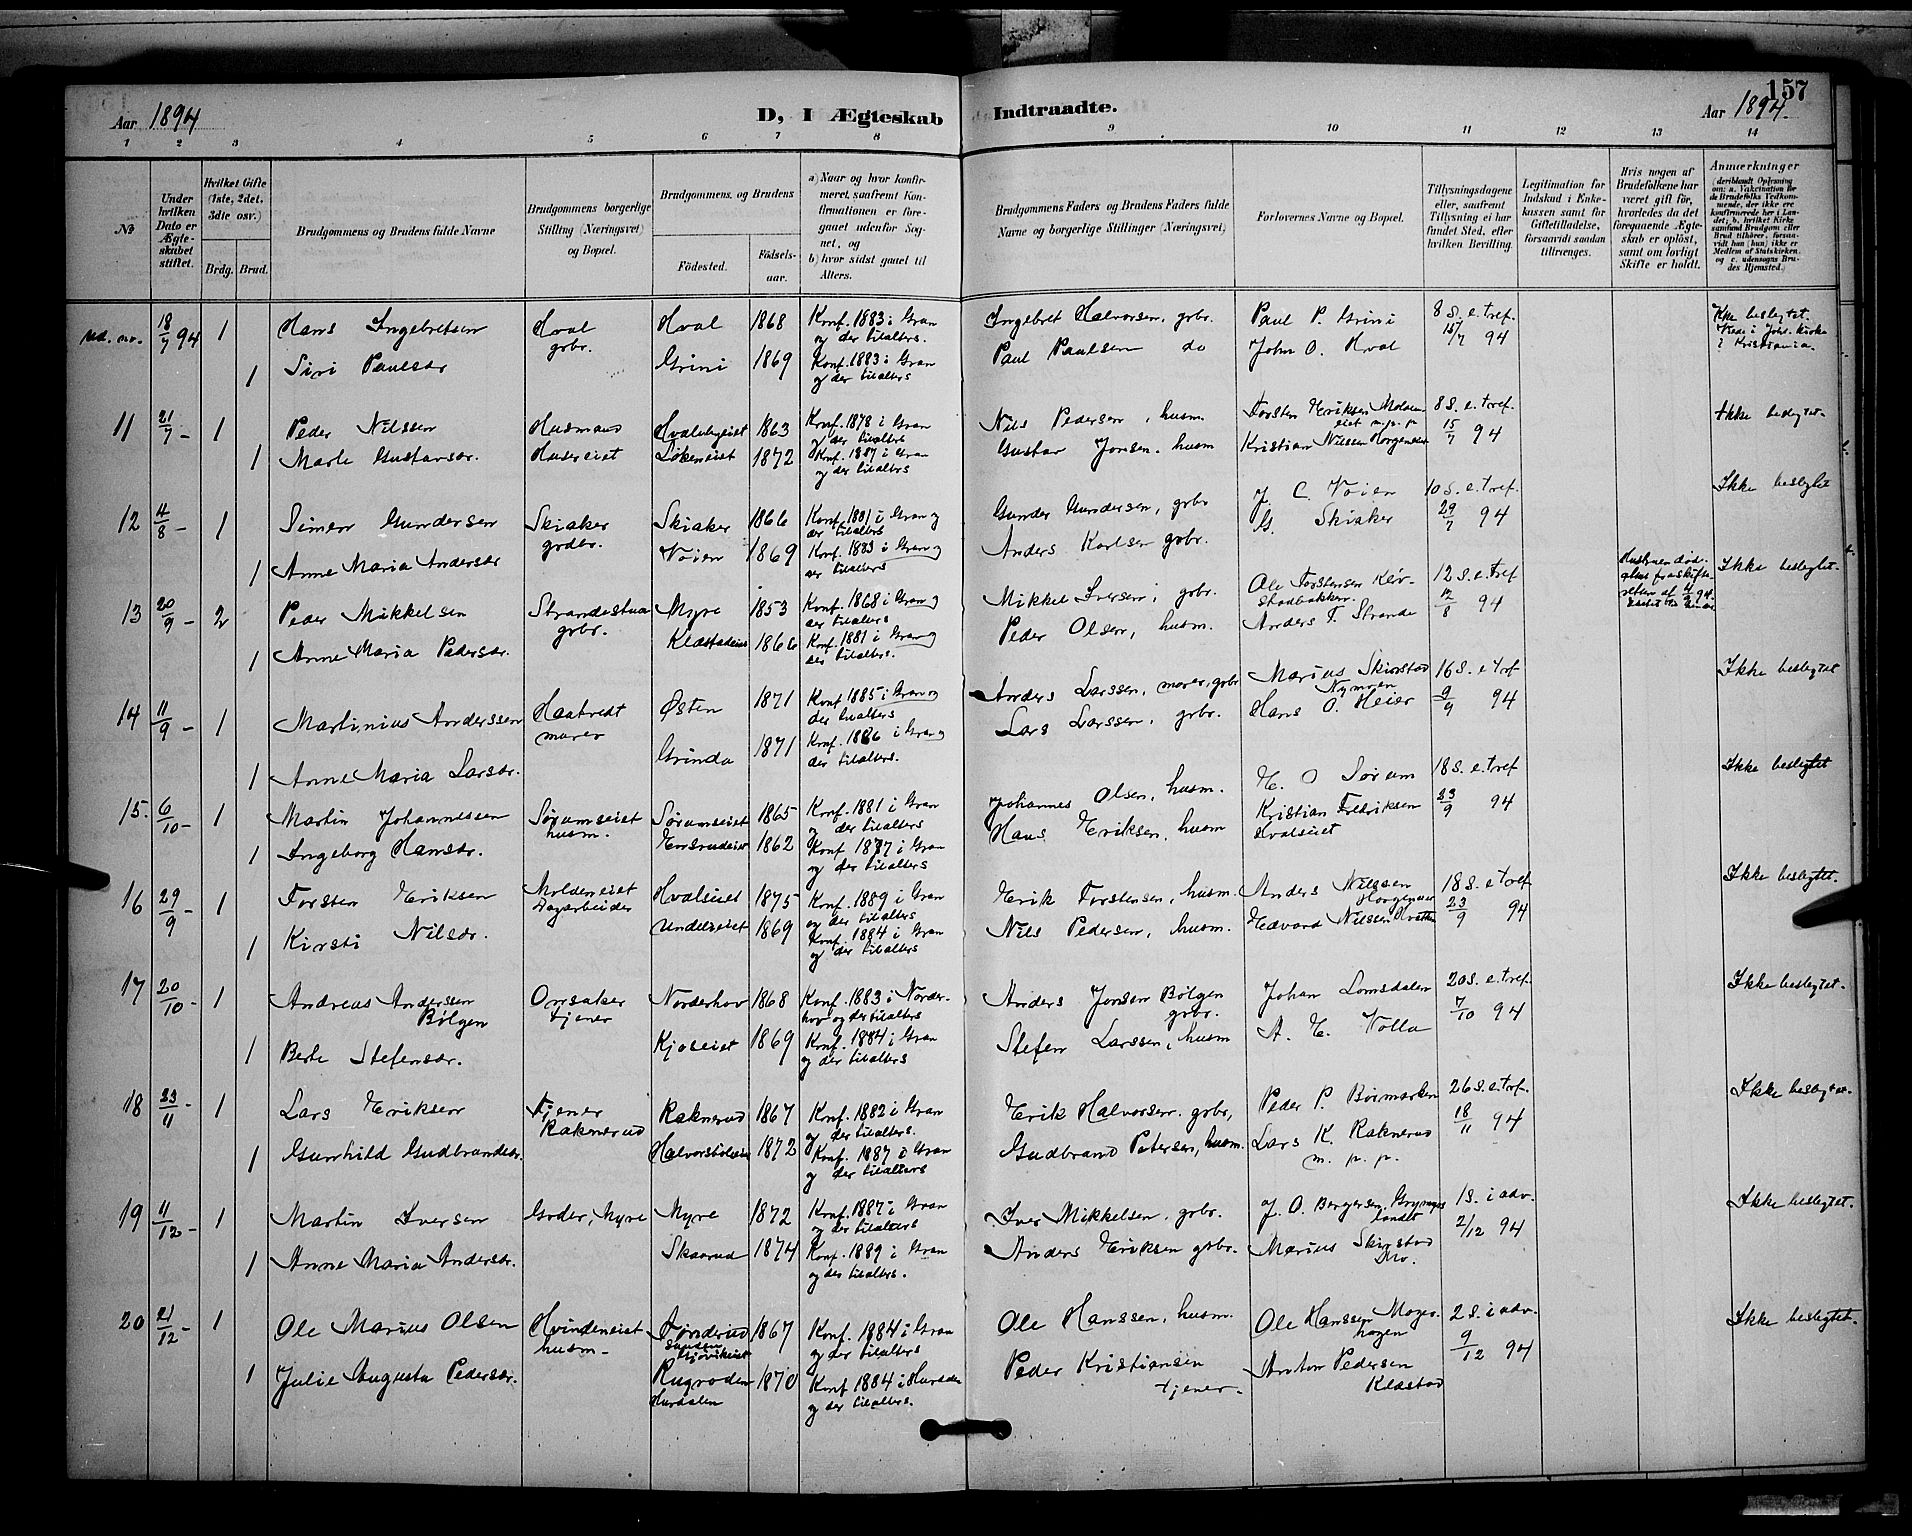 157
Aar 1894
D, I Ægteskab Indtraadte.
Aar 1894.
1 2 3 4 5 6 7 8 9 10 11 12 13 14
No
Under hvilken Dato er Ægteskabet stiftet.
Hvilket Gifte (1ste, 2det, 3die osv.)
Brdg. Brud.
Brudgommens og Brudens fulde Navne
Brudgommens borgerlige Stilling (Næringsvei) og Bopæl.
Brudgommens og Brudens
Födested.
Födselsaar.
a) Naar og hvor konfirmeret, saafremt Konfirmationen er foregaaet udenfor Sognet, og
b) hvor sidst gaaet til Alters.
Brudgommens Faders og Brudens Faders fulde Navne og borgerlige Stillinger (Næringsvei)
Forlovernes Navne og Bopæl.
Tillysningsdagene eller, saafremt Tillysning ei har fundet Sted, efter hvilken Bevilling.
Legitimation for Indskud i Enkekassen samt for Giftetilladelse, forsaavidt saadan tiltrænges.
Hvis nogen af Brudefolkene har været gift för, hvorledes da det foregaaende Ægteskab er oplöst, samt om lovligt Skifte er holdt.
Anmærkninger
(deriblandt Oplysning om; a. Vakcination for de Brudefolks Vedkommende, der ikke ere konfirmerede her i Landet; b. hvilket Kirkesamfund Brudgom eller Brud tilhörer, forsaavidt han (hun) ikke er Medlem af Statskirken. og c. udensogns Brudes Hjemsted.)
18/7 94 1 Hans Ingebretsen Hval grbr. Hval 1868 Konf. 1883 i Gran og der tilalters. Ingebret Halvorsen, grbr. Paul P. Grini 8 S. e. tref. Ikke beslegtet.
1 Siri Paulsdr Grini 1869 Konf. 1883 i Gran og der tilalters Paul Paulsen do John O. Hval 15/7 94 Viede i Joh. kirke i Kristiania.
11 21/7 - 1 Peder Nilssen Husmand Hvalebyeiet 1863 Konf. 1878 i Gran og der tilalters Nils Pedersen, husm. Torsten Eriksen Moldeneiet m. p. p. 8 S. e. tref. Ikke beslegtet.
1 Marte Gustavsdr. Husereiet Lökeneiet 1872 Konf. 1887 i Gran og der tilalters Gustav Jonsen. husm Kristian Nilssen Horgeneiet 15/7 94
12 4/8 - 1 Simen Gundersen Skiaker grdbr. Skiaker 1866 Konf. 1881 i Gran og der tilalters Gunder Gundersen, grbr J. C. Vöien 10 S. e. tref. Ikke beslegtet
1 Anne Maria Andersdr Vöien 1869 Konf. 1883 i Gran og der tilalters Anders Karlsen grbr. G. Skiaker 29/7 94
13 20/9 - 2 Peder Mikkelsen Strandestuen grbr. Myre 1853 Konf. 1868 i Gran og der tilalters Mikkel Iversen, grbr. Ole Torstensen Klövstadbakken. 12 S. e. tref Ikke beslegtet.
1 Anne Maria Pedersdr. Klæstadeiet 1866 Konf. 1881 i Gran og der tilalters. Peder Olsen, husm. Anders T. Strande 12/8 94
14 11/9 - 1 Martinius Anderssen Haatvedt murer Østen 1871 Konf. 1885 i Gran og der tilalters Anders Larssen, murer, grbr Marius Skirstad Nymoen 16 S. e tref Ikke beslegtet
1 Anne Maria Larsdr. Grinda 1871 Konf. 1886 i Gran og der tilalters. Lars Larssen, grbr. Hans O. Heier 9/9 94
15. 6/10 - 1 Martin Johannessen Sörumseiet husm. Sörumseiet 1865 Konf. 1881 i Gran og der tilalters Johannes Olsen, husm. H. O Sörum 18 S. e. tref Ikke beslegtet
1 Ingeborg Hansdr. 1862 Konf 1877 i Gran og der tilalters Hans Eriksen, husm Kristian Fredriksen Hvalseiet 23/9 94
16 29/9 - 1 Torsten Eriksen Moldeneiet Dagarbeider Hvalseiet 1875 Konf. 1889 i Gran og der tilalters Erik Torstensen, husm. Anders Nilssen Horgeneiet 18 S. e tref Ikke beslegtet.
1 Kirsti Nilsdr. Undeleiet 1869 Konf. 1884 i Gran og der tilalters Nils Pedersen, husm. Edvard Nilssen 23/9 94
17 20/10 - 1 Andreas Anderssen Bölgen Onsaker tjener Norderhov 1868 Konf. 1883 i Norderhov og der tilalters Anders Jonsen Bölgen grbr. Johan Lomsdalen 20 S. e. tref. Ikke beslegtet.
1 Berte Stefensdr. Kjoseiet 1869 Konf. 1884 i Gran og der tilalters Stefen Larssen, husm A. E. Volla 7/10 94
18 23/11 - 1 Lars Eriksen Tjener Raknerud Raknerud 1867 Konf. 1882 i Gran og der tilalters. Erik Halvorsen. grbr, Peder P. Börmarken 26 S. e. tref. Ikke beslegtet.
1 Gunhild Gudbrandsdr. 1872 Konf. 1887 i Gran og der tilalters Gudbrand Petersen, husm. Lars K. Raknerud m. p. p. 18/11 94
19 11/12 - 1 Martin Iversen Grder, Myre Myre 1872 Konf. 1887 i Gran og der tilalters Iver Mikkelsen, grbr. J. O. Bergersen, 1 S. i adv. Ikke beslegtet.
1 Anne Maria Andersdr. Skaarud 1874 Konf. 1889 i Gran og der tilalters. Anders Eriksen grbr. Marius Skirstad 2/12 94
20 21/12 - 1 Ole Marius Olsen Hvindeneiet husm. Tönderud 1867 Konf. 1884 i Gran og der tilalters Ole Hanssen, husm. Ole Hanssen Mogerhagen 2 S. i adv. Ikke beslegtet.
1 Julie Augusta Pedersdr. Hurdalen 1870 Konf 1884 i Hurdalen og der tilalters. Peder Kristiansen tjener. Anton Pedersen Klæstad 9/12 94